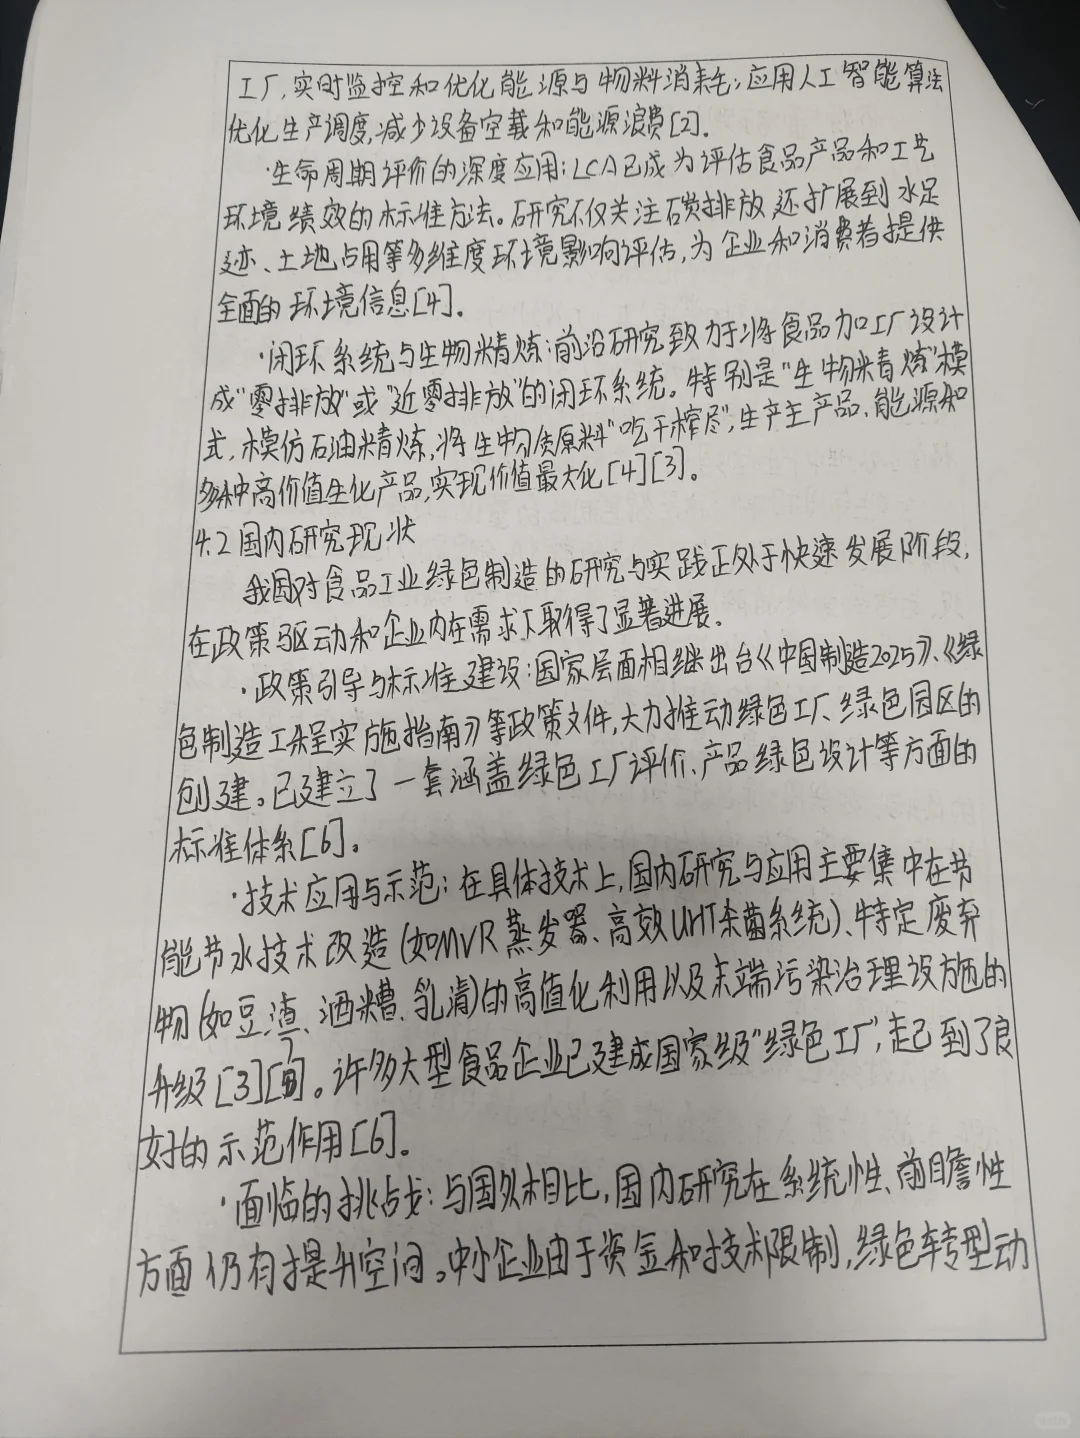 工厂,实时监控和优化能源与物料消耗;应用人工智能算法
优化生产调度,减少设备空载和能源浪费[2]。
·生命周期评价的深度应用:LCA已成为评估食品产品和工艺
环境绩效的标准方法。研究不仅关注碳排放还扩展到水足
迹、土地占用等多维度环境影响评估,为企业和消费者提供
全面的环境信息[4]。
·闭环系统与生物精炼:前沿研究致力于将食品加工厂设计
成“零排放”或“近零排放”的闭环系统。特别是“生物精炼”模
式,模仿石油精炼,将生物质原料“吃干榨尽”,生产主产品、能源和
多种高价值生化产品,实现价值最大化[4][3]。
4.2国内研究现状
我国对食品工业绿色制造的研究与实践正处于快速发展阶段,
在政策驱动和企业内在需求下取得了显著进展。
·政策引导与标准建设:国家层面相继出台《中国制造2025》、《绿
色制造工程实施指南》等政策文件,大力推动绿色工厂、绿色园区的
创建。已建立了一套涵盖绿色工厂评价、产品绿色设计等方面的
标准体系[6]。
·技术应用与示范:在具体技术上,国内研究与应用主要集中在节
能节水技术改造(如MVR蒸发器、高效UHT杀菌系统)、特定废弃
物(如豆渣、酒糟、乳清)的高值化利用以及末端污染治理设施的
升级[3][]。许多大型食品企业已建成国家级“绿色工厂”,起到了良
好的示范作用[6]。
·面临的挑战:与国外相比,国内研究在系统性、前瞻性
方面仍有提升空间。中小企业由于资金和技术限制,绿色转型动